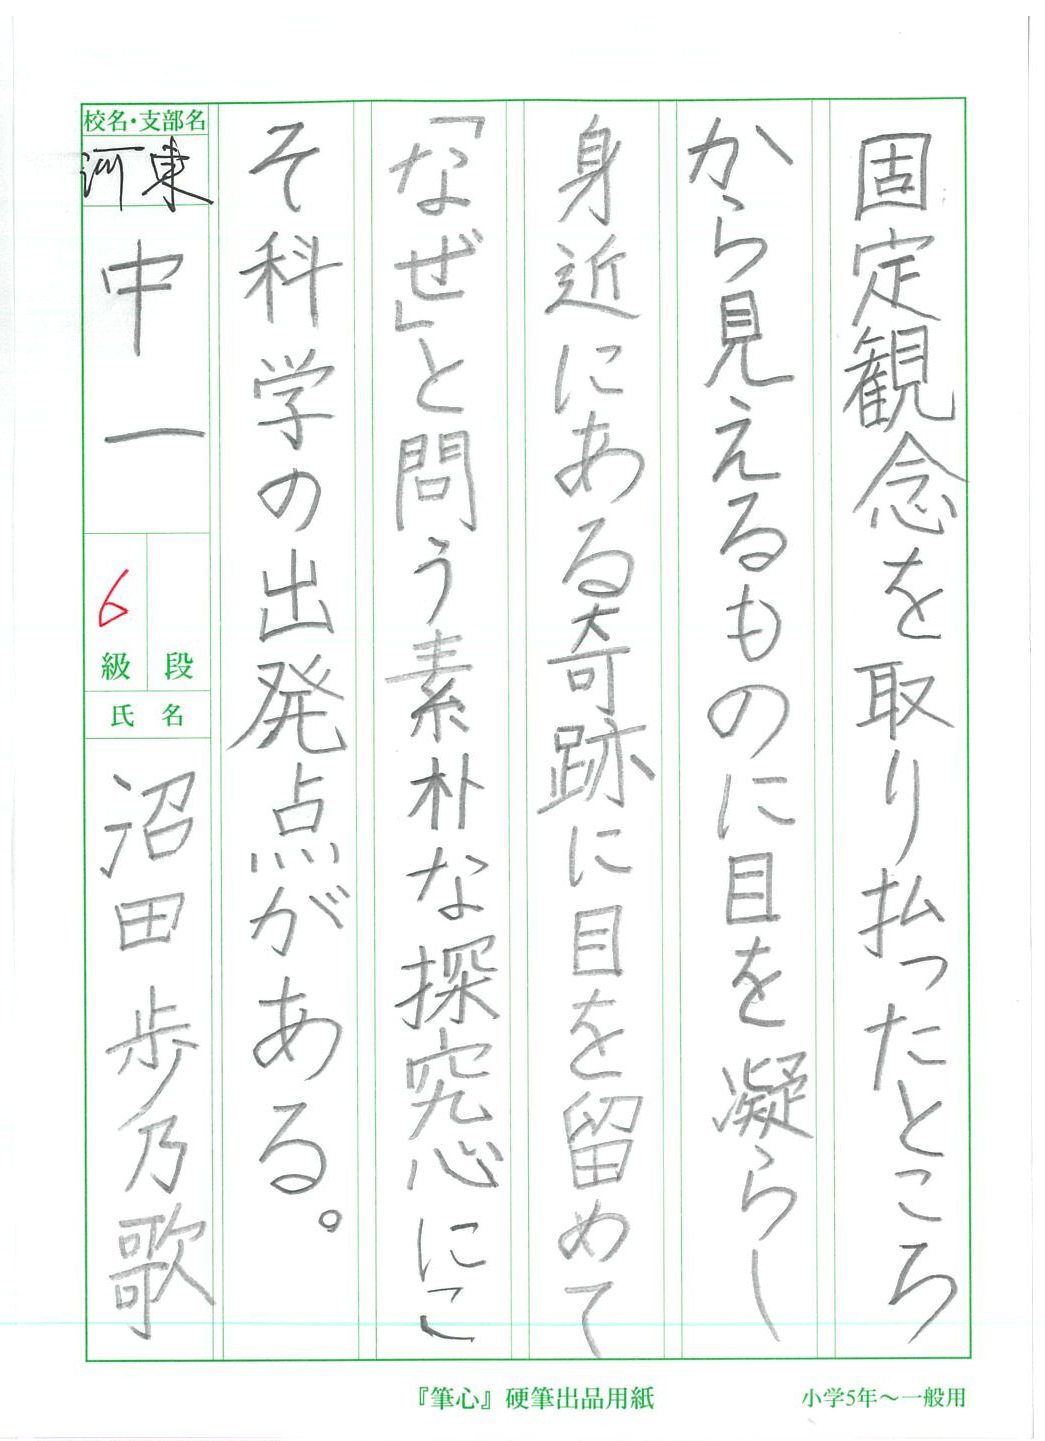 固定観念を取り払ったところ
から見えるものに目を凝らし
身近にある奇跡に目を留めて
「なぜ」と問う素朴な探究心にこ
そ科学の出発点がある。
校名・支部名
河東
中一
6
級 段
氏 名
沼田歩乃歌
『筆心』硬筆出品用紙
小学5年〜一般用